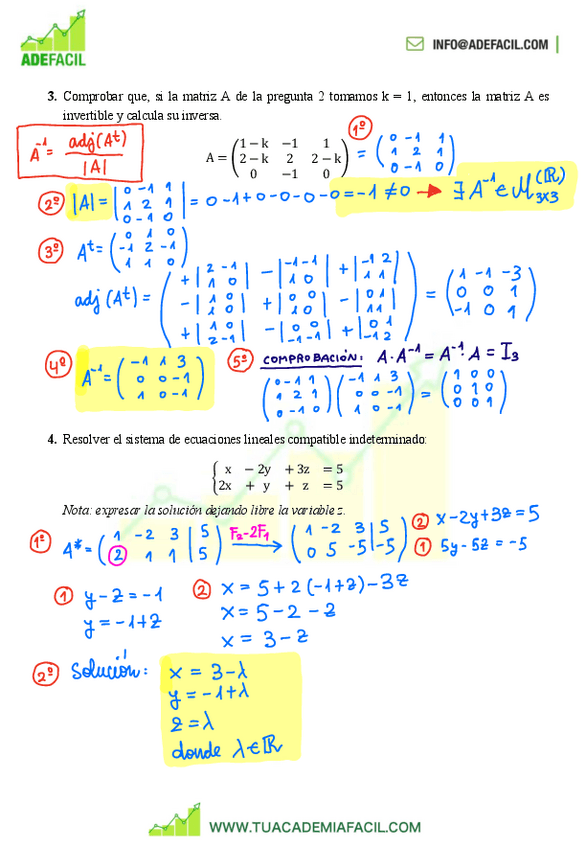 ADEFACIL
INFO@ADEFACIL.COM
3. Comprobar que, si la matriz A de la pregunta 2 tomamos k = 1, entonces la matriz A es
invertible y calcula su inversa.
A⁻¹ = adj(Aᵗ) / |A|
A = (1 − k −1 1; 2 − k 2 2 − k; 0 −1 0) 1º = (0 -1 1; 1 2 1; 0 -1 0)
2º |A| = |0 -1 1; 1 2 1; 0 -1 0| = 0-1+0-0-0-0 = -1 ≠ 0 → ∃ A⁻¹ ∈ M₃ₓ₃(ℝ)
3º Aᵗ = (0 1 0; -1 2 -1; 1 1 0)
adj(Aᵗ) = (+|2 -1; 1 0| -|-1 -1; 1 0| +|-1 2; 1 1|; -|1 0; 1 0| +|0 0; 1 0| -|0 1; 1 1|; +|1 0; 2 -1| -|0 0; -1 -1| +|0 1; -1 2|) = (1 -1 -3; 0 0 1; -1 0 1)
4º A⁻¹ = (-1 1 3; 0 0 -1; 1 0 -1)
5º COMPROBACIÓN: A·A⁻¹ = A⁻¹·A = I₃
(0 -1 1; 1 2 1; 0 -1 0) (-1 1 3; 0 0 -1; 1 0 -1) = (1 0 0; 0 1 0; 0 0 1)
4. Resolver el sistema de ecuaciones lineales compatible indeterminado:
{ x − 2y + 3z = 5
2x + y + z = 5
Nota: expresar la solución dejando libre la variable z.
1º A* = (1 -2 3 | 5; 2 1 1 | 5) F₂-2F₁ → (1 -2 3 | 5; 0 5 -5 | -5) 2 x-2y+3z=5
1 5y-5z=-5
1 y-z=-1
y=-1+z
2 x = 5+2(-1+z)-3z
x = 5-2-z
x = 3-z
2º Solución: x = 3-λ
y = -1+λ
z = λ
donde λ∈ℝ
WWW.TUACADEMIAFACIL.COM